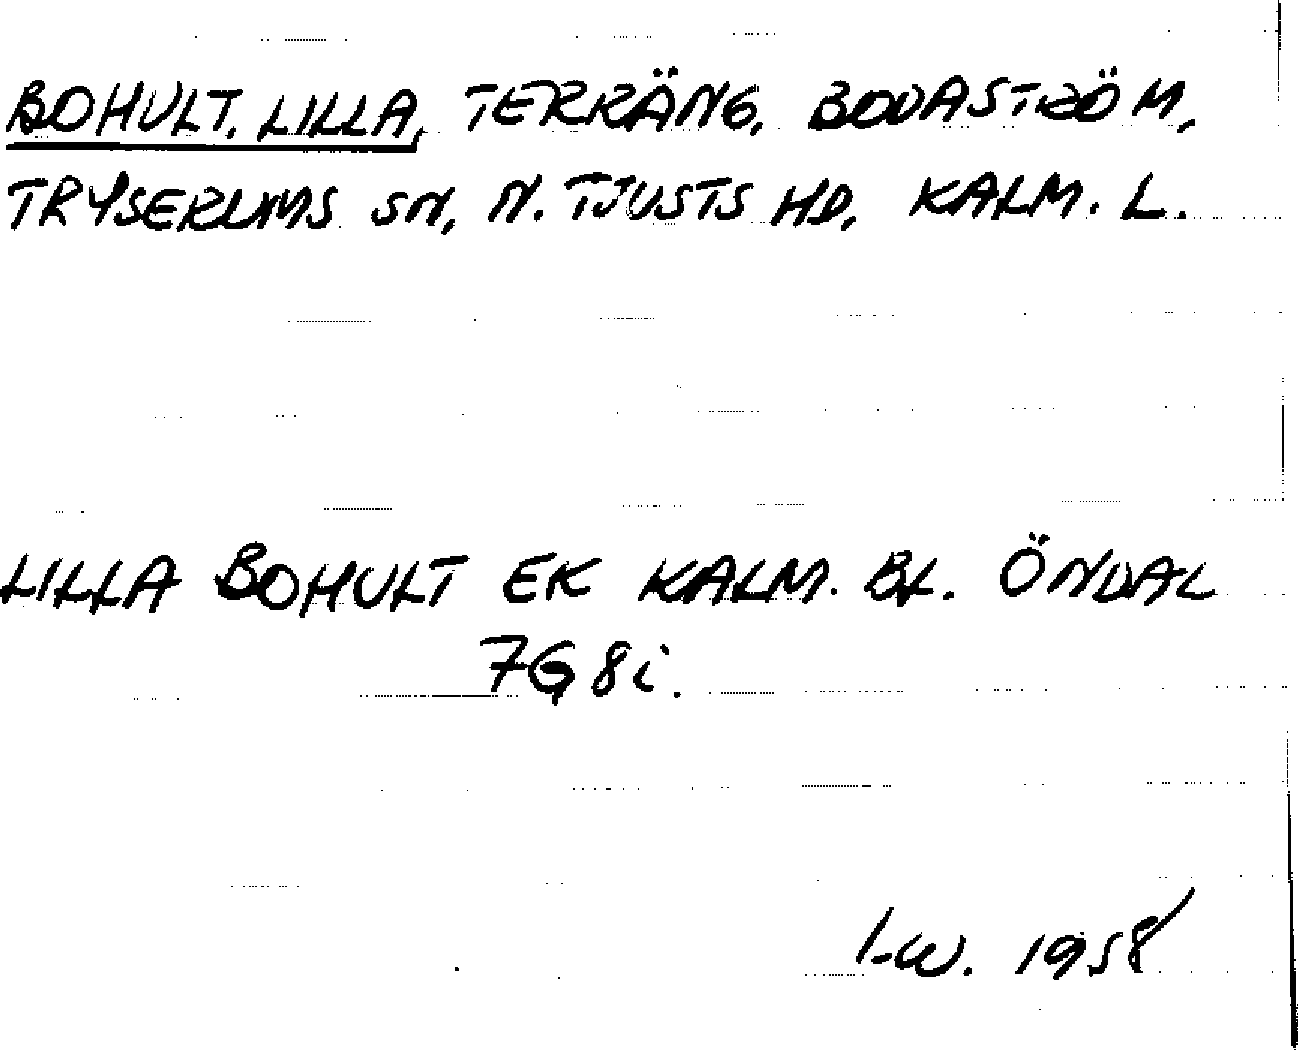 BOHULT, LILLA, TERRÄNG, BODASTRÖM,
TRYSERUMS SN, N. TJUSTS HD, KALM. L.
LILLA BOHULT EK KALM. BL. ÖNDAL
7G 8i.
I-W. 1958